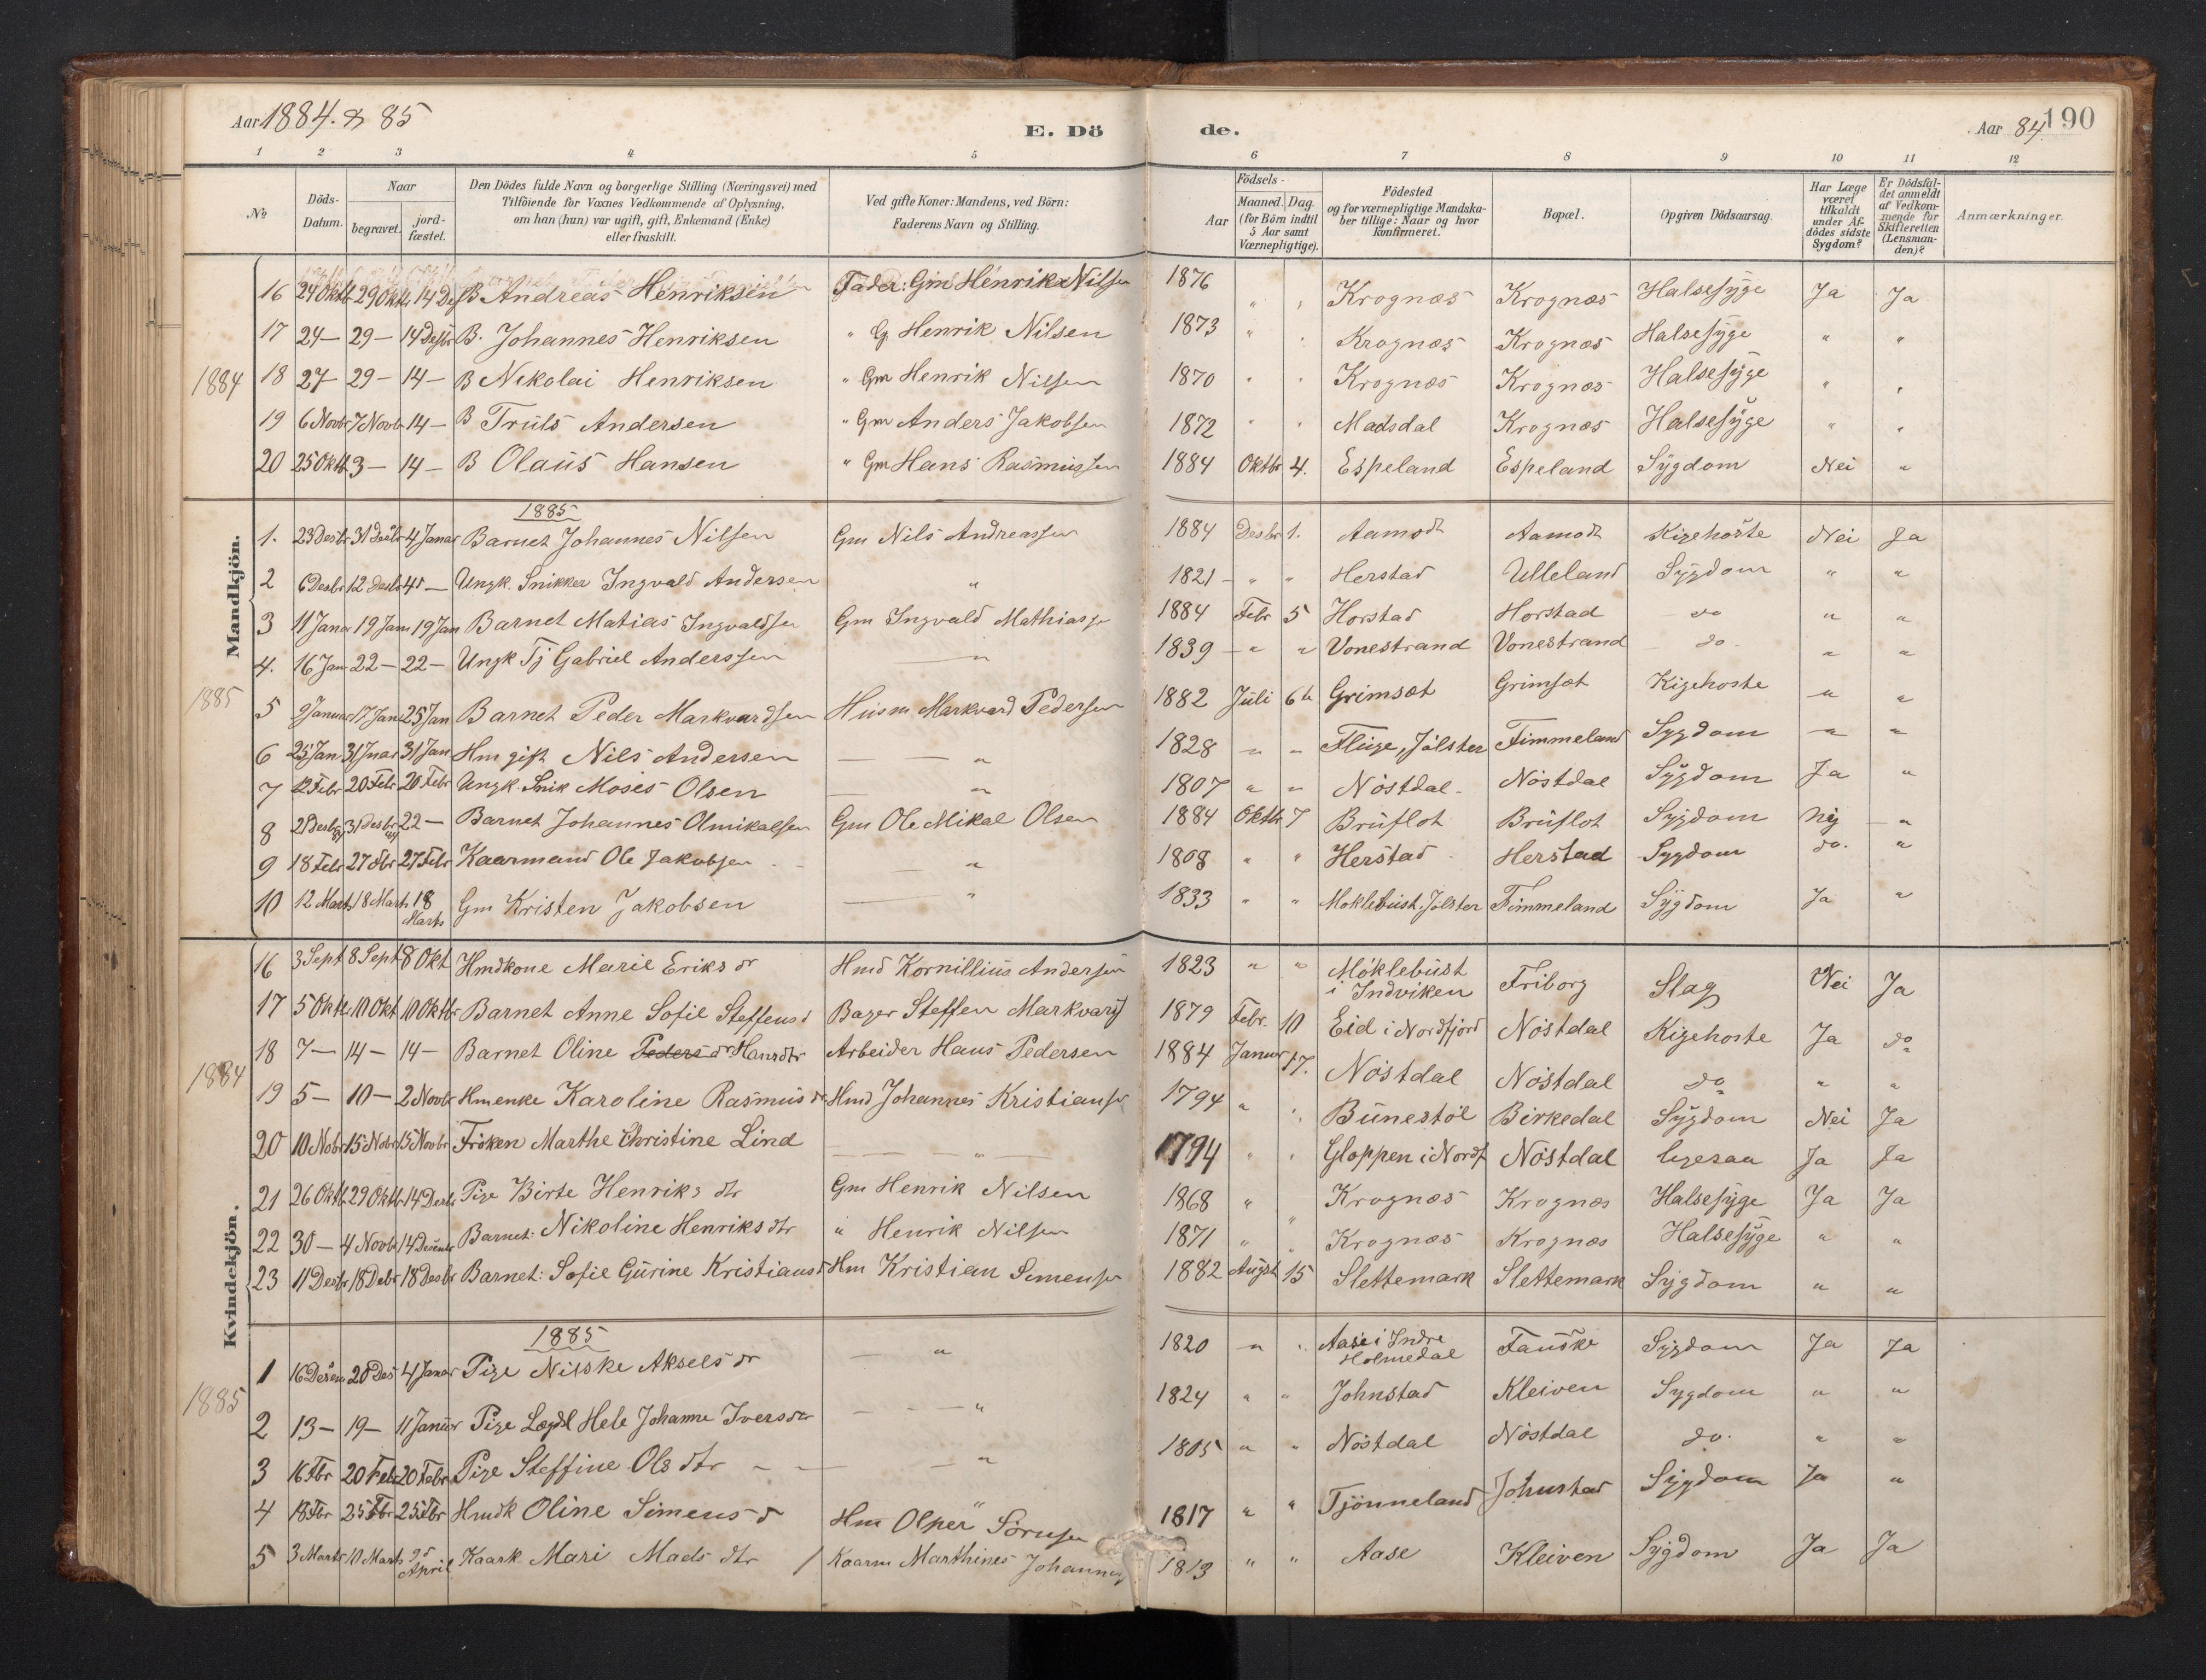 Aar 1884. & 85
E. Dö de.
Aar 84.
190
1 2 3 4 5 6 7 8 9 10 11 12
№
Döds-Datum.
Naar
begravet.
jord-fæstet.
Den Dödes fulde Navn og borgerlige Stilling (Næringsvei) med
Tilföiende for Voxnes Vedkommende af Oplysning,
om han (hun) var ugift, gift, Enkemand (Enke)
eller fraskilt.
Ved gifte Koner: Mandens, ved Börn:
Faderens Navn og Stilling.
Födsels-
Aar
Maaned. Dag.
(for Börn indtil
5 Aar samt
Værnepligtige).
Födested
og for værnepligtige Mandska-
ber tillige: Naar og hvor
konfirmeret.
Bopæl.
Opgiven Dödsaarsag.
Har Læge
været
tilkaldt
under Af-
dödes sidste
Sygdom?
Er Dödsfal-
det anmeldt
af Vedkom-
mende for
Skifteretten
(Lensman-
den)?
Anmærkninger.
Mandkjön.
1884
16 24 Oktb 29 Oktb 14 Des B Andreas Henriksen Fader: Gm Henrik Nilsen 1876 " " Krognæs Krognæs Halsesyge Ja Ja
17 24 — 29 — 14 Desbr B. Johannes Henriksen " G. Henrik Nilsen 1873 " " Krognæs Krognæs Halsesyge " "
18 27 — 29 — 14 — B Nikolai Henriksen " Gm Henrik Nilsen 1870 " " Krognæs Krognæs Halsesyge " "
19 6 Novbr 7 Novb 14 — B Truls Andersen " Gm Anders Jakobsen 1872 " " Madsdal Krognæs Halsesyge " "
20 25 Oktb 3 — 14 — B Olaus Hansen " Gm Hans Rasmussen 1884 Oktbr 4. Espeland Espeland Sygdom Nei "
1885
1885
1. 23 Desbr 31 Desbr 4 Januar Barnet Johannes Nilsen Gm Nils Andreassen 1884 Desbr 1. Aamodt Aamodt Kigehoste Nei Ja
2 6 Desbr 12 Desbr 4 — Ungk. Snikker Ingvald Andersen " 1821 — " " Herstad Ulleland Sygdom " "
3 11 Janu 19 Janu 19 Jan Barnet Matias Ingvaldsen Gm Ingvald Mathiass 1884 Febr 5 Horstad Horstad do " "
4. 16 Jan 22 — 22 — Ungk Tj Gabriel Anderssen — " 1839 — " " Vonestrand Vonestrand do. " "
5 9 Januar 17 Jan 25 Jan Barnet Peder Markvardsen Husm Markvard Pedersen 1882 Juli 6te Grimsæt Grimsæt Kigehoste " "
6 25 Jan 31 Jnuar 31 Jan Hm gift Nils Andersen — — " 1828 " " Fluge, Jölster Fimmeland Sygdom " "
7 12 Febr 20 Febr 20 Febr Ungk. Snik Moses Olsen — " 1807 " " Nöstdal. Nöstdal Sygdom Ja "
8 21 Desbr 84 31 Desbr 84 22 — Barnet Johannes Olmikalsen Gm Ole Mikal Olsen 1884 Oktb 7 Bruflot Bruflot Sygdom "
9 18 Febr 27 Fbr 27 Febr Kaarmand Ole Jakobsen — " 1808 " " Herstad Herstad Sygdom do. "
10 12 Marts 18 Marts 18 Marts Gm Kristen Jakobsen — " 1833 " " Moklebust Jölster Fimmeland Sygdom Ja "
Kvindekjön.
1884
16 3 Sept 8 Sept 8 Okt Hmdkone Marie Eriks dr Hmd Kornillius Andersen 1823 " " Möklebust i Indviken Friborg Slag Nei Ja
17 5 Oktb 10 Okt 10 Oktbr Barnet Anne Sofie Steffensd Bager Steffen Markvards 1879 Febr. 10 Eid i Nordfjord Nöstdal Kigehoste Ja do
18 7 — 14 — 14 — Barnet Oline Peders dr Hansdtr Arbeider Hans Pedersen 1884 Januar 17. Nöstdal Nöstdal do " "
19 5 — 10 — 2 Novbr Hmenke Karoline Rasmus dr Hmd Johannes Kristians 1794 " " Bunestöl Birkedal Sygdom Nei Ja
20 10 Nobr 15 Nobr 15 Novbr Fröken Marthe Christine Lind — — " — 1794 " " Gloppen i Nordf Nöstdal ligesaa Ja Ja
21 26 Oktb 29 Oktb 14 Desbr Pige Birte Henriks dtr Gm Henrik Nilsen 1868 " " Krognæs Krognæs Halsesyge Ja Ja
22 30 — 4 Novbr 14 Desember Barnet: Nikoline Henriks dtr " Henrik Nilsen 1871 " " Krognæs Krognæs Halsesyge " "
23 11 Desbr 18 Debr 18 Desbr Barnet: Sofie Gurine Kristiansd Hm Kristian Simensen 1882 Augst 15 Slettemark Slettemark Sygdom " "
1885
1885
1 16 Desem 20 Des 4 Janar Pige Nilske Aksels dr — " 1820 " " Aase i Indre Holmedal Fauske Sygdom Ja Ja
2 13 — 19 — 11 Januar Pige Lægdl Hele Johanne Iversdtr — — " 1824 " " Johnstad Kleiven Sygdom " "
3 16 Fbr 20 Feb 20 Febr Pige Steffine Ols dtr — — " 1805 " " Nöstdal Nöstdal do. " "
4 18 Fbr 25 Fbr 25 Fbr Hmdk Oline Simens d Hm Olper Sörnsen 1817 " " Tjönneland Johnstad Sygdom Ja "
5 3 Marts 10 Marts April Kaark Mari Mads dtr / Kaarm Marthines Johannes 1813 " " Aase Kleiven Sygdom Ja Ja